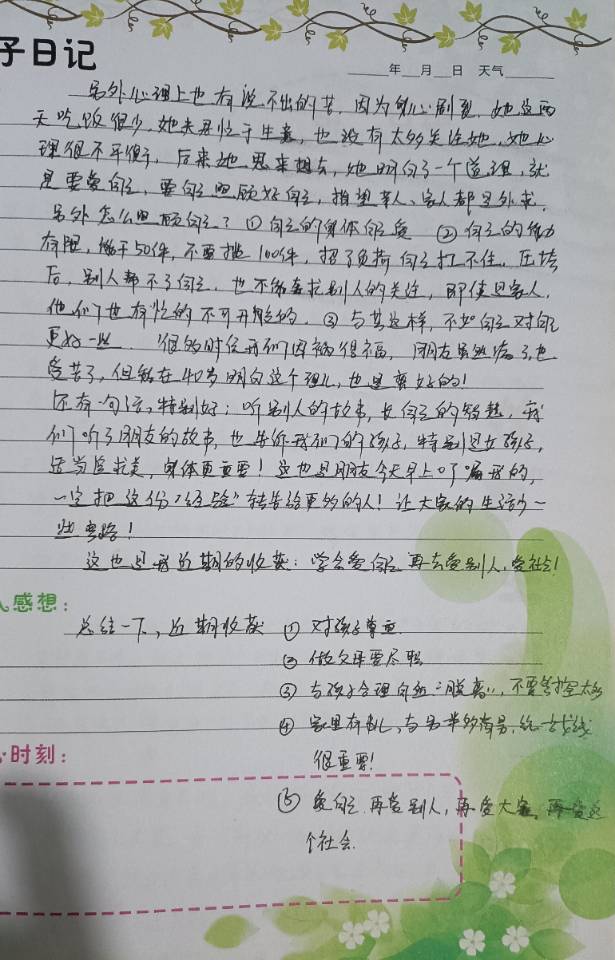 子日记
年 月 日 天气
另外心理上也有说不出的苦,因为钻心剧裂,她这两
天吃饭很少,她夫君忙于生意,也没有太多关注她,她心
理很不平衡,后来她思来想去,她明白了一个道理,就
是要爱自己,要自己照顾好自己,指望亲人、家人都是外求,
另外怎么照顾自己?①自己的身体自己负 ②自己的能力
有限,能干50件,不要揽100件,超了负荷自己扛不住,压垮
后,别人帮不了自己,也不能去找别人的关注,即使是家人,
他们也有忙的不可开胶的,③与其这样,不如自己对自己
更好一些. 很多时候我们因祸得福,朋友虽然病了,也
受苦了,但能在40岁明白这个理儿,也是蛮好的!
还有一句话,特别好:听别人的故事,长自己的智慧,我
们听了朋友的故事,也告诉我们的孩子,特别是女孩子,
适当追求美,身体更重要!这也是朋友今天早上叮嘱我的,
一定把这份“经验”转告给更多的人!让大家的生活少一
些弯路!
这也是我近期的收获:学会爱自己再去爱别人,爱社会!
感想:
总结一下,近期收获 ①对孩子尊重
②做父母要尽职
③与孩子合理自然“脱离”,不要管控太多
④家里有事儿,与另一半多商量,统一战线
很重要!
时刻:
⑤爱自己,再爱别人,再爱大家,再爱这
个社会.